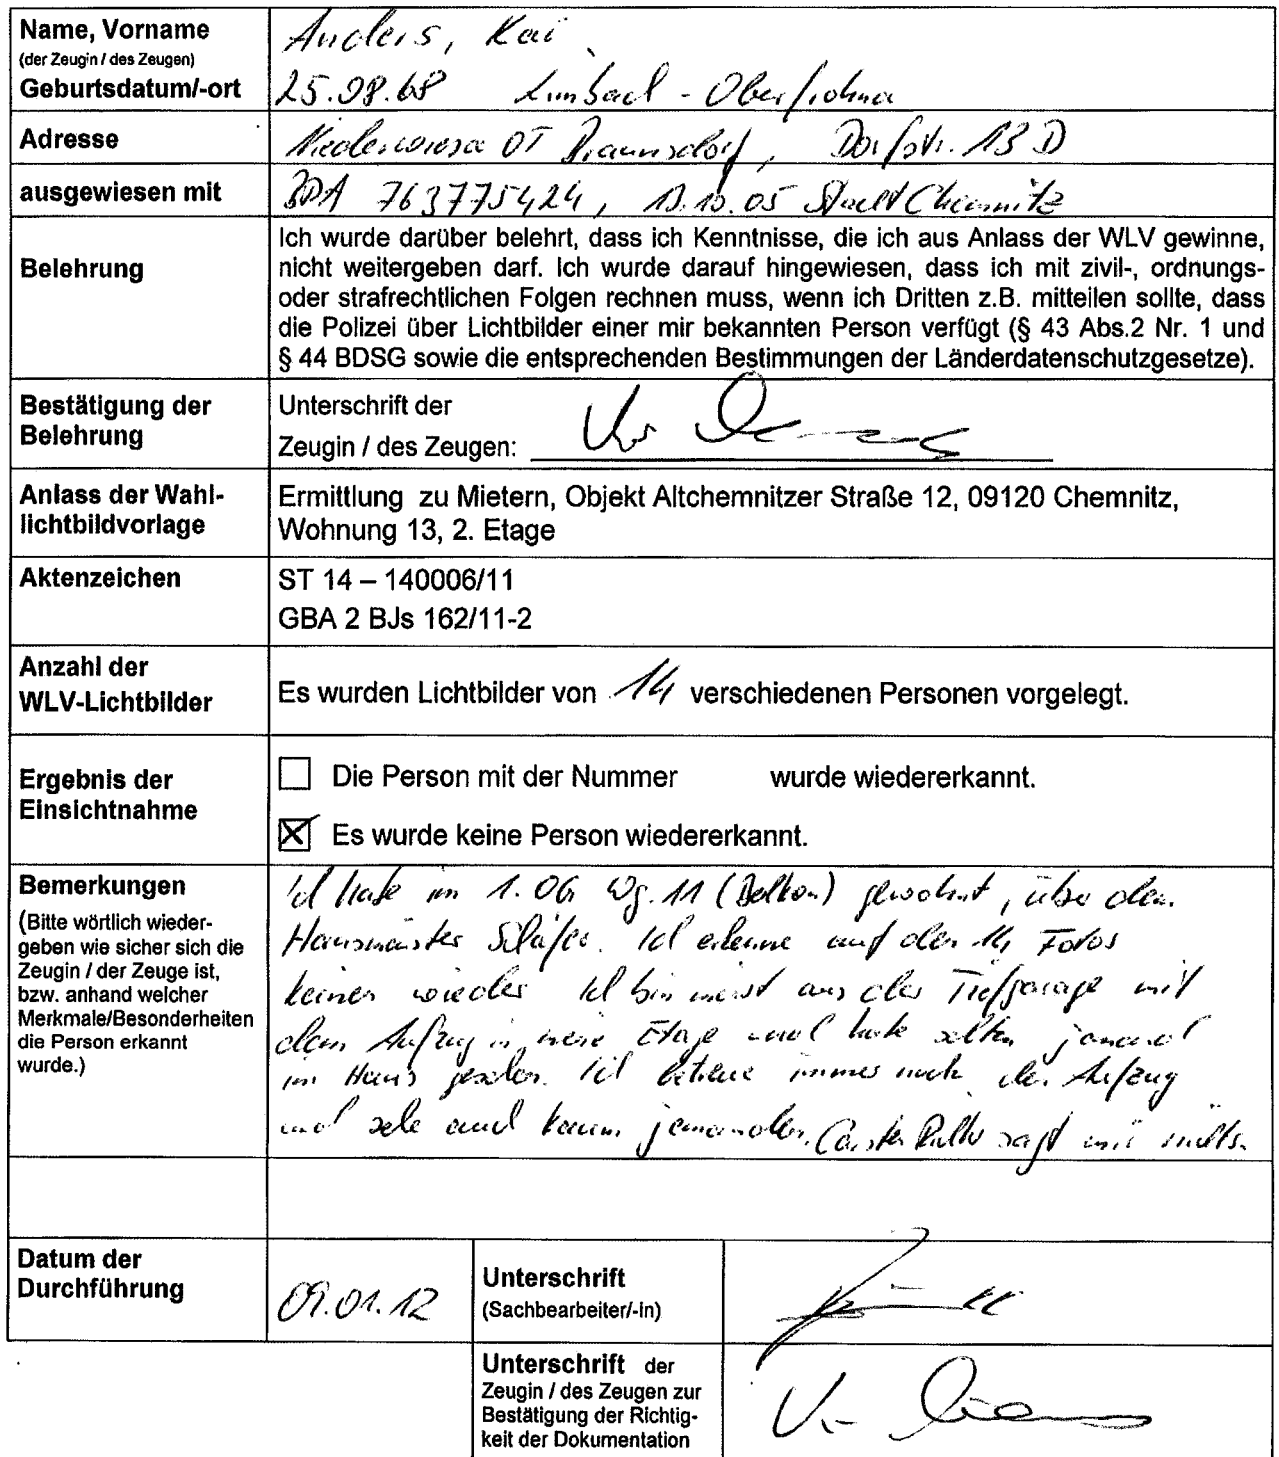 Name, Vorname
(der Zeugin / des Zeugen)
Geburtsdatum/-ort
Anders, Kai
25.08.68 Limbach - Oberfrohna
Adresse
Niederwiesa OT Braunsdorf, Dorfstr. 13 D
ausgewiesen mit
BPA 763775424, 13.10.05 Stadt Chemnitz
Belehrung
Ich wurde darüber belehrt, dass ich Kenntnisse, die ich aus Anlass der WLV gewinne,
nicht weitergeben darf. Ich wurde darauf hingewiesen, dass ich mit zivil-, ordnungs-
oder strafrechtlichen Folgen rechnen muss, wenn ich Dritten z.B. mitteilen sollte, dass
die Polizei über Lichtbilder einer mir bekannten Person verfügt (§ 43 Abs.2 Nr. 1 und
§ 44 BDSG sowie die entsprechenden Bestimmungen der Länderdatenschutzgesetze).
Bestätigung der
Belehrung
Unterschrift der
Zeugin / des Zeugen:
Anlass der Wahl-
lichtbildvorlage
Ermittlung zu Mietern, Objekt Altchemnitzer Straße 12, 09120 Chemnitz,
Wohnung 13, 2. Etage
Aktenzeichen
ST 14 – 140006/11
GBA 2 BJs 162/11-2
Anzahl der
WLV-Lichtbilder
Es wurden Lichtbilder von 14 verschiedenen Personen vorgelegt.
Ergebnis der
Einsichtnahme
Die Person mit der Nummer wurde wiedererkannt.
Es wurde keine Person wiedererkannt.
Bemerkungen
(Bitte wörtlich wieder-
geben wie sicher sich die
Zeugin / der Zeuge ist,
bzw. anhand welcher
Merkmale/Besonderheiten
die Person erkannt
wurde.)
Ich habe im 1. OG Wg. 11 (Balkon) gewohnt, über dem
Hausmeister Schäfer. Ich erkenne auf den 14 Fotos
keinen wieder. Ich bin meist aus der Tiefgarage mit
dem Aufzug in meine Etage und habe selten jemand
im Haus gesehen. Ich betreue immer noch den Aufzug
und sehe auch kaum jemanden. sagt mir nichts.
Datum der
Durchführung
09.01.12
Unterschrift
(Sachbearbeiter/-in)
Unterschrift der
Zeugin / des Zeugen zur
Bestätigung der Richtig-
keit der Dokumentation